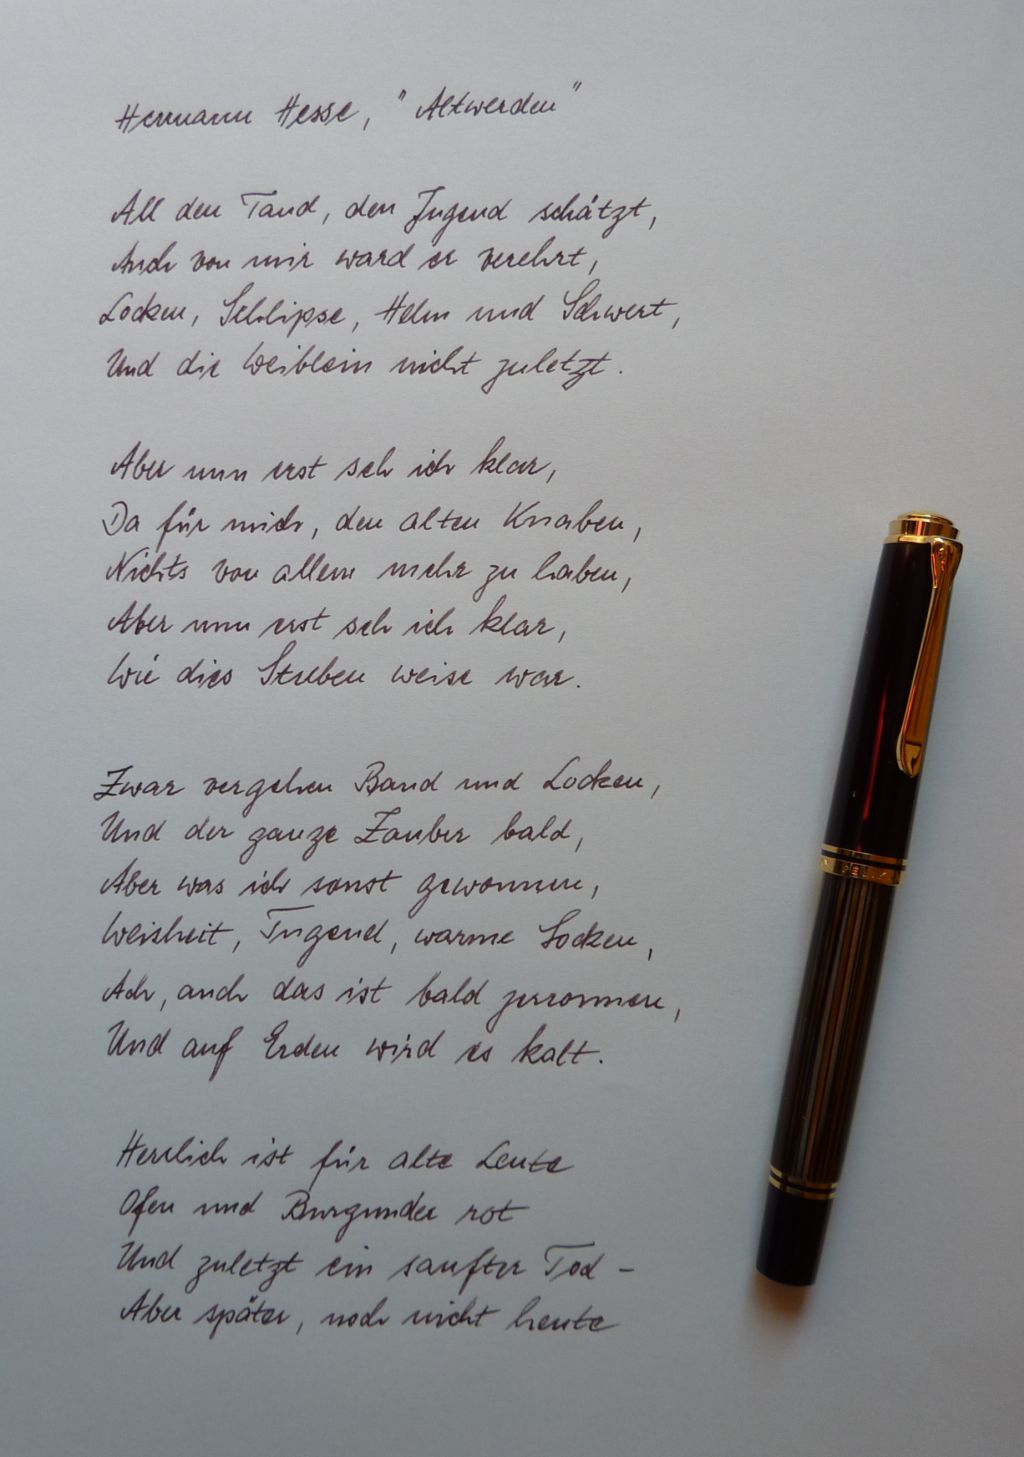 Hermann Hesse, "Altwerden"
All den Tand, den Jugend schätzt,
Auch von mir ward er verehrt,
Locken, Schlipse, Helm und Schwert,
Und die Weiblein nicht zuletzt.
Aber nun erst seh ich klar,
Da für mich, den alten Knaben,
Nichts von allem mehr zu haben,
Aber nun erst seh ich klar,
Wie dies Streben weise war.
Zwar vergehen Band und Locken,
Und der ganze Zauber bald,
Aber was ich sonst gewonnen,
Weisheit, Tugend, warme Socken,
Ach, auch das ist bald zerronnen,
Und auf Erden wird es kalt.
Herrlich ist für alte Leute
Ofen und Burgunder rot
Und zuletzt ein sanfter Tod –
Aber später, noch nicht heute